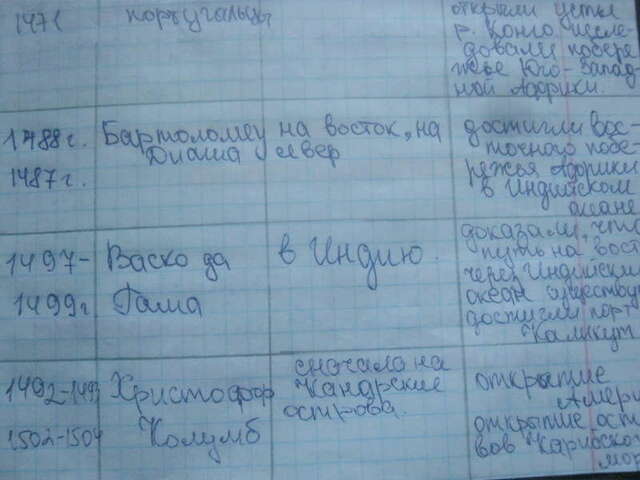 1471
португальцы
открыли устье
р. Конго иссле-
довали побере
жье Юго-Запад-
ной Африки.
1488г.
1487г.
Бартоломеу
Диаш
на восток, на
север
достигли вос-
точного побе-
режья Африки
в Индийском
океане
1497-
1499г
Васко да
Гама
в Индию.
доказали, что
путь на вост
через Индийский
океан существу
достигли порт
Каликут
1492-1493
1502-1504
Христофор
Колумб
сначала на
Канарские
острова.
открытие
Амери
открытие ост
вов Карибског
мор